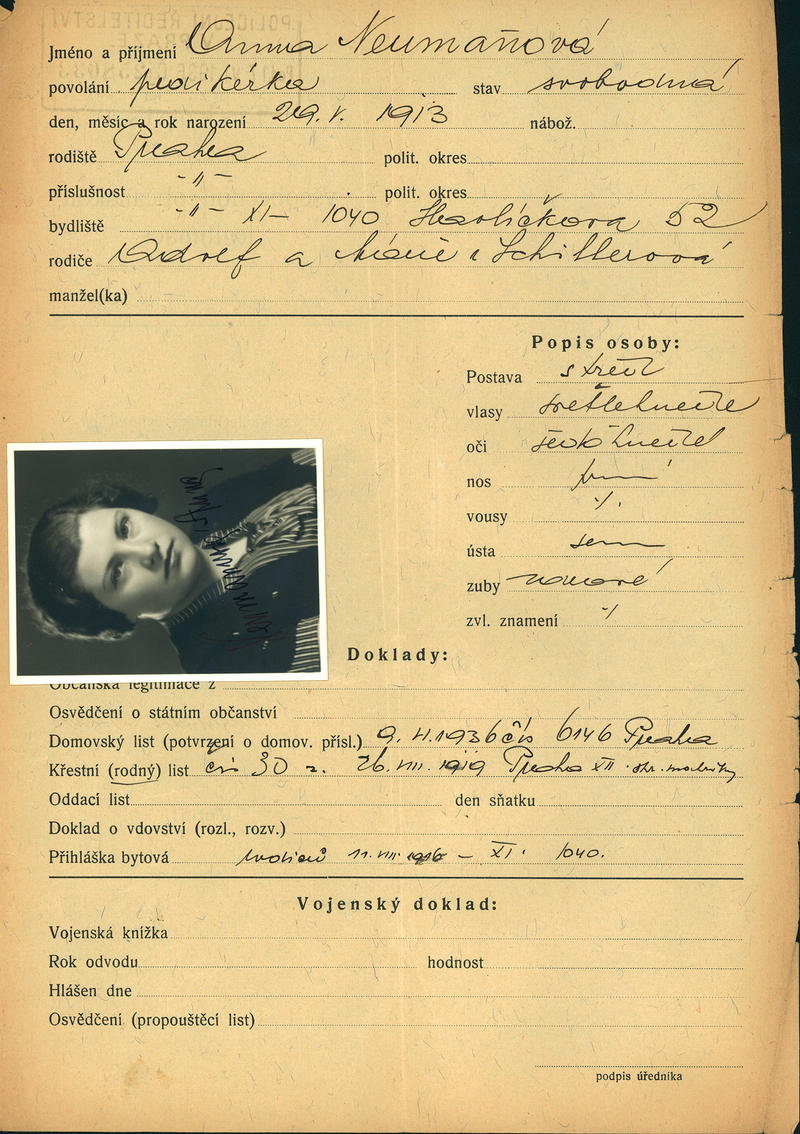 POLICEJNÍ ŘEDITELSTVÍ
Jméno a příjmení Anna Neumanová
povolání pedikérka stav svobodná
den, měsíc a rok narození 29. V. 1913 nábož.
rodiště Praha polit. okres
příslušnost -"- polit. okres
bydliště -"- XI - 1040 Havlíčkova 52
rodiče Adolf a Marie Schillerová
manžel(ka)
Popis osoby:
Postava střed
vlasy světlehnědé
oči hnědé
nos
vousy ./.
ústa
zuby
zvl. znamení ./.
Neumannová Anna
Doklady:
Občanská legitimace z
Osvědčení o státním občanství
Domovský list (potvrzení o domov. přísl.) 9. 1936 čís 6146 Praha
Křestní (rodný) list čís 30 z 26. VIII. 1919 Praha XII
Oddací list den sňatku
Doklad o vdovství (rozl., rozv.)
Přihláška bytová 11. VIII. 1936 - XI. 1040.
Vojenský doklad:
Vojenská knížka
Rok odvodu hodnost
Hlášen dne
Osvědčení (propouštěcí list)
podpis úředníka